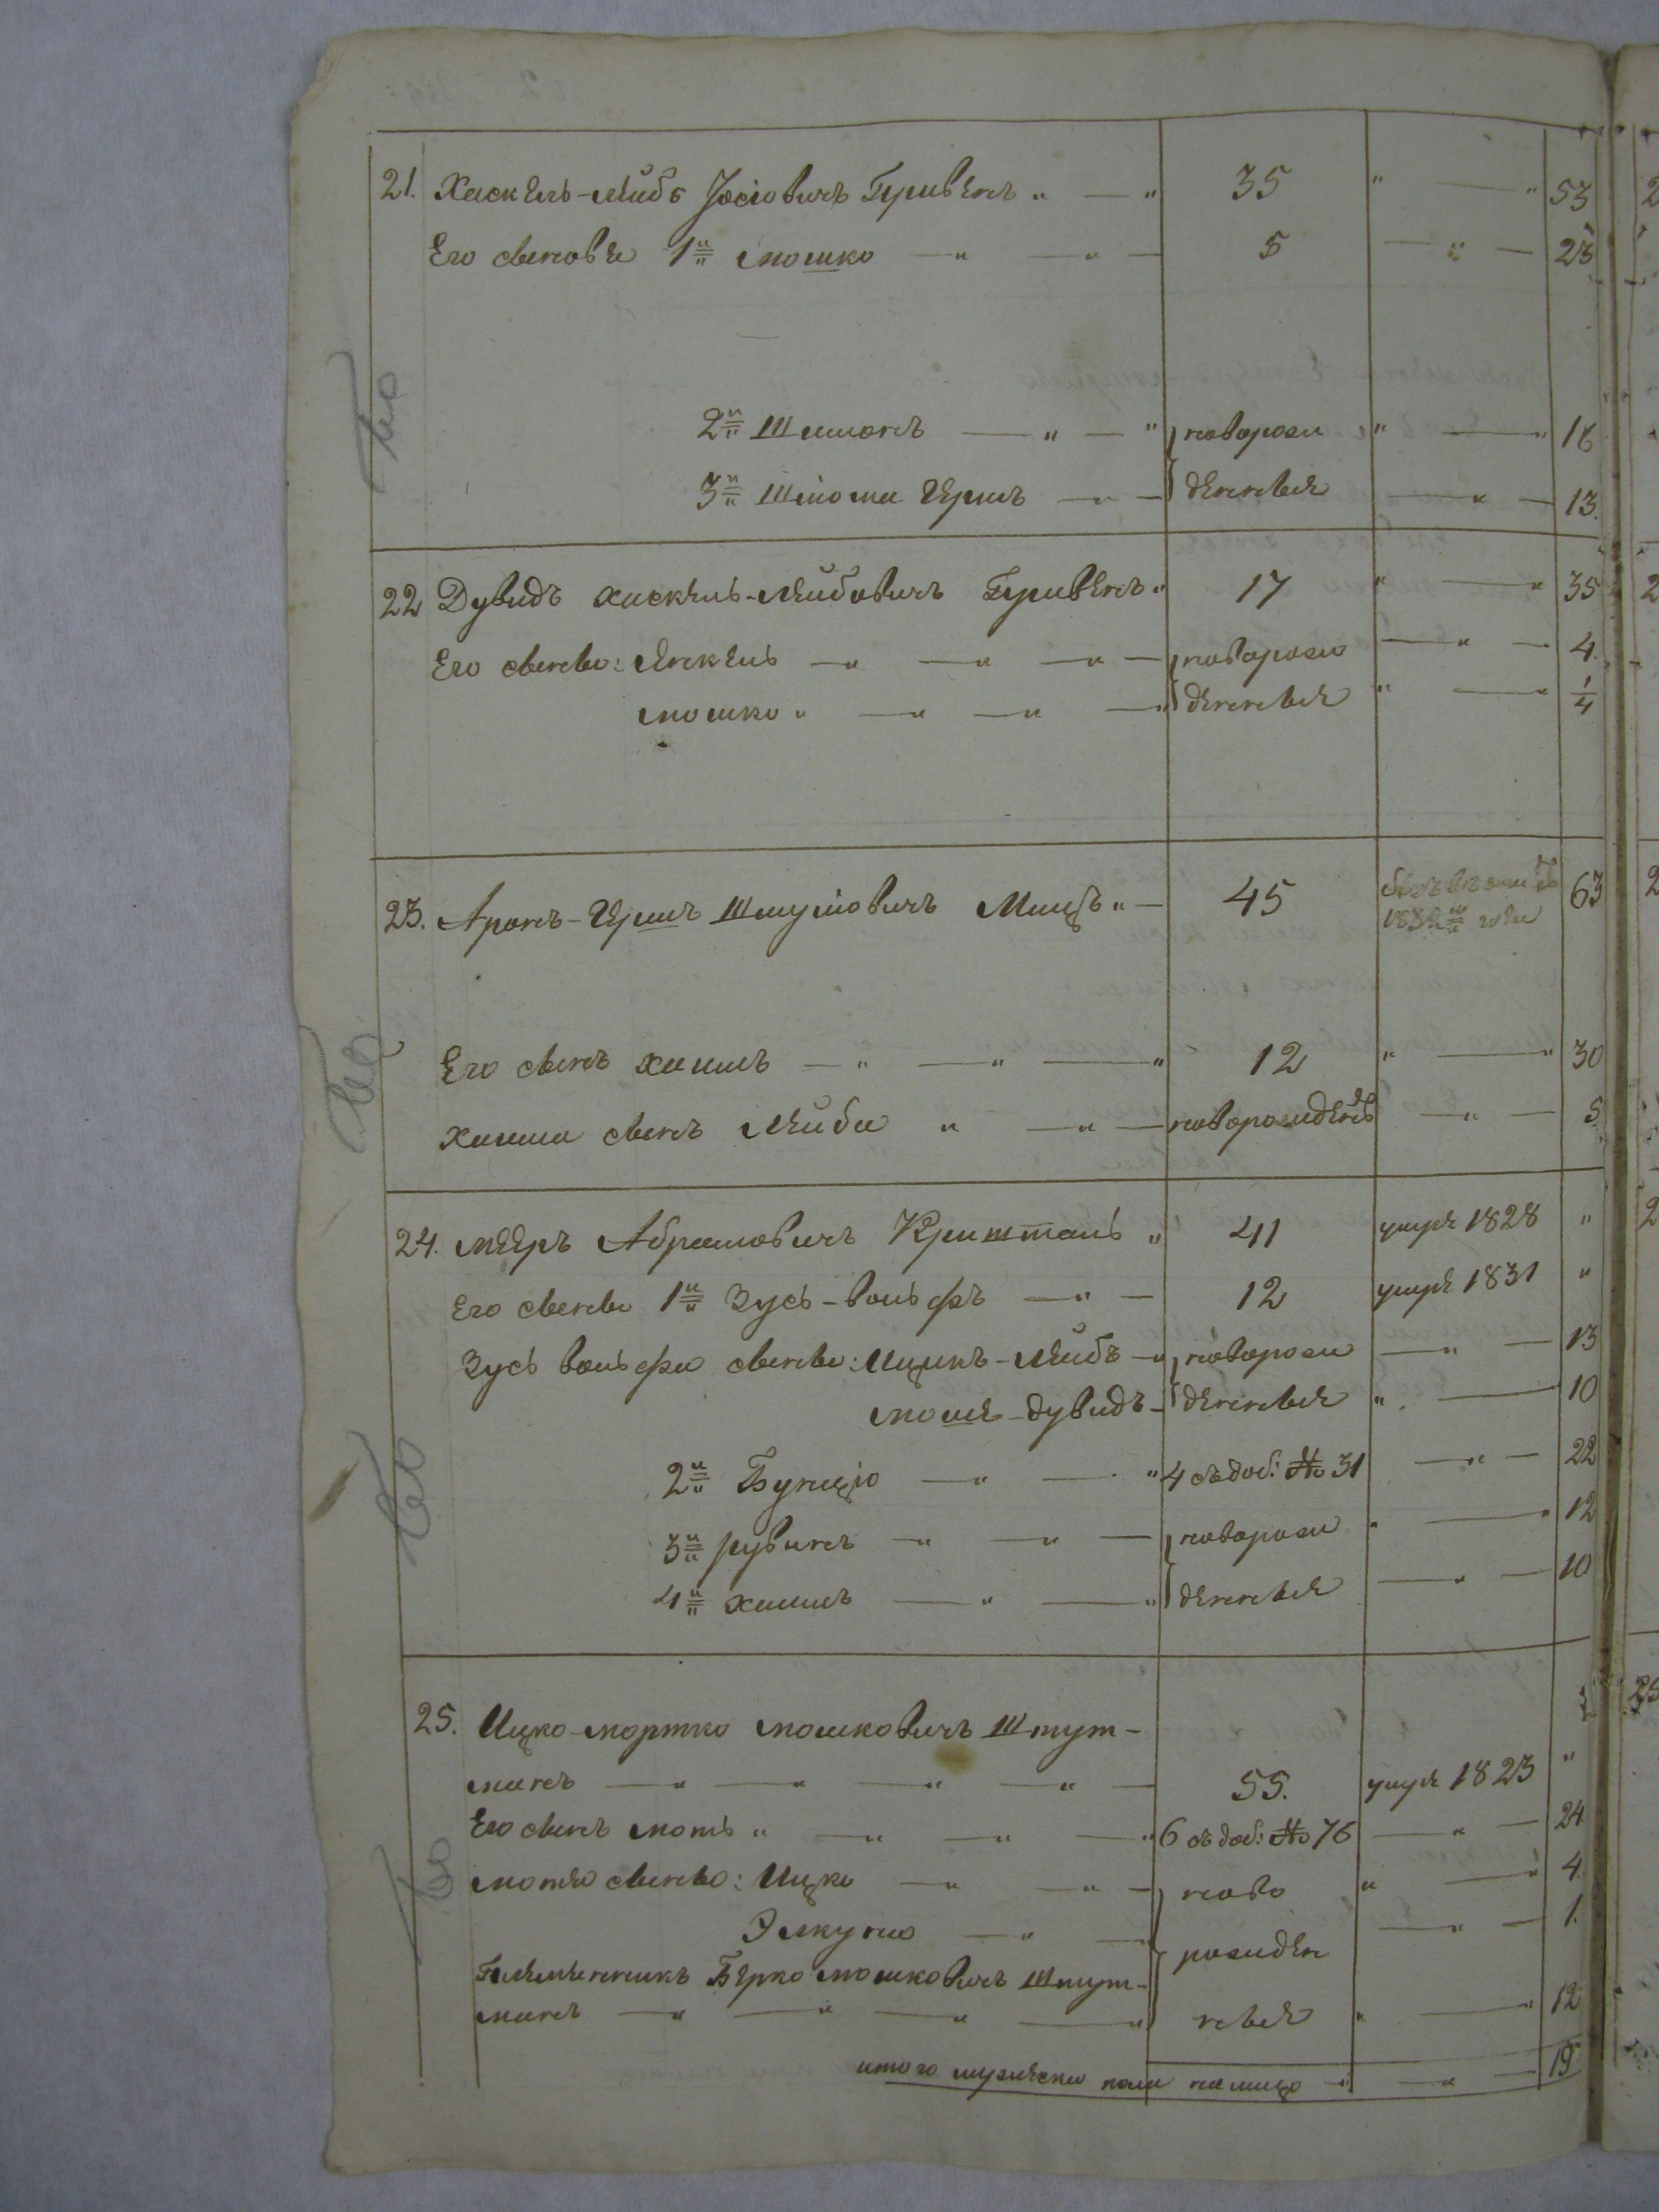 21. Хаскель-Лейбъ Іосіовичъ Гуривенъ " — " 35 " — " 53
Его сыновья 1й Мошко — " — " — 5 — " — 23
2й Шимонъ — " — " новорож " — " 16
3й Шліома Гершъ — " — денные — " — 13.
22 Дувидъ Хаскель-Лейбовичъ Гуривенъ " 17 " — " 35
Его сыны: Янкель — " — " — " — новорож — " — 4.
Мошко " — " — " — " денные " — " 1/4
23. Аронъ-Гершъ Шмуліовичъ Минцъ " — 45 1832го года 63
Его сынъ Хаимъ — " — " — " 12 " — " 30
Хаима сынъ Лейба " — " — новорожденъ — " — 5
24. Мееръ Абрамовичъ Криштапь " 41 умре 1828 "
Его сыны 1й Зусь-Вольфъ — " — 12 умре 1831 "
Зусь Вольфа сыны: Ицикъ-Лейбъ — " новорож — " — 13
Моше-Дувидъ — денные " — 10
2й Бунцiо — " — " 4 съ доб: № 31 — " — 22
3й Рувинъ — " — " — новорож " — " 12
4й Хаимъ — " — " денные — " — 10
25. Ицко-Мортко Мошковичъ Штут-
манъ — " — " — " — " — 55. умре 1823 "
Его сынъ Моть " — " — " — " 6 съ доб: № 76 — " — 24
Мотя сыны: Ицко — " — " — ново " — " 4.
Элкуна — " — " рожден — " — 1.
Племенникъ Берко Мошковичъ Штут-
манъ — " — " — " — " ные " — " 12
итого мужеска пола на лицо — " — " — 19